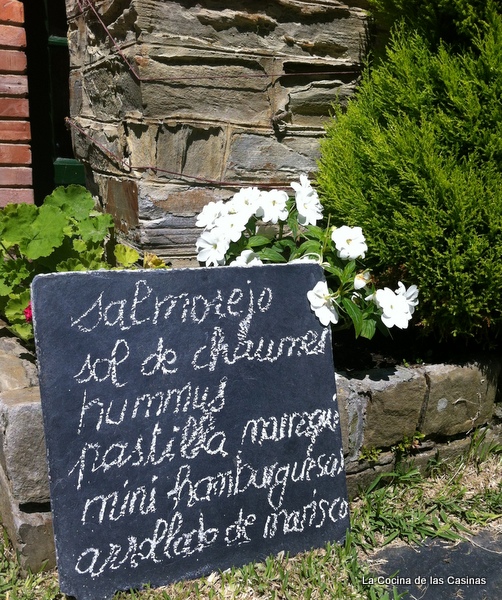 salmorejo
sol de chaumes
hummus
pastilla marroquí
mini hamburguesas
arrollado de marisco
La Cocina de las Casinas